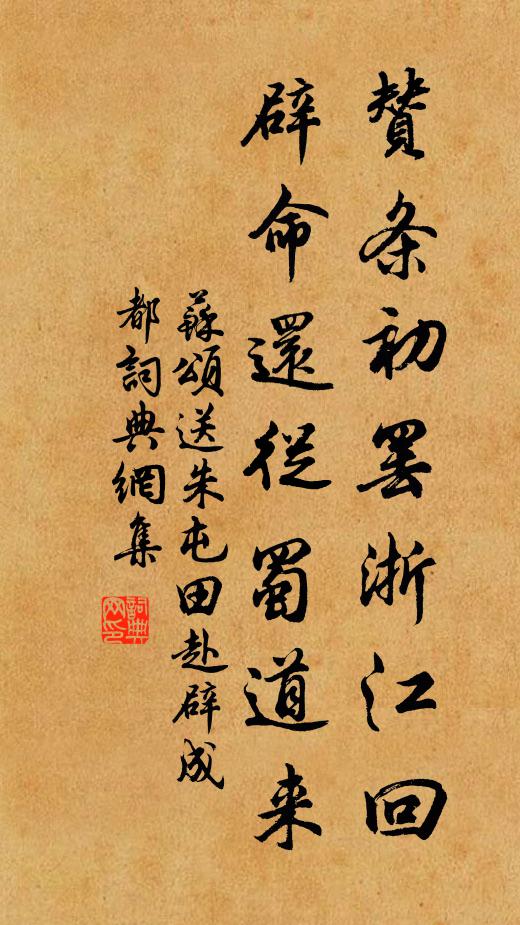 赞条初罢浙江回
辟命還從蜀道来
蘇頌送朱屯田赴辟成
都詞典網集
詞典
网印